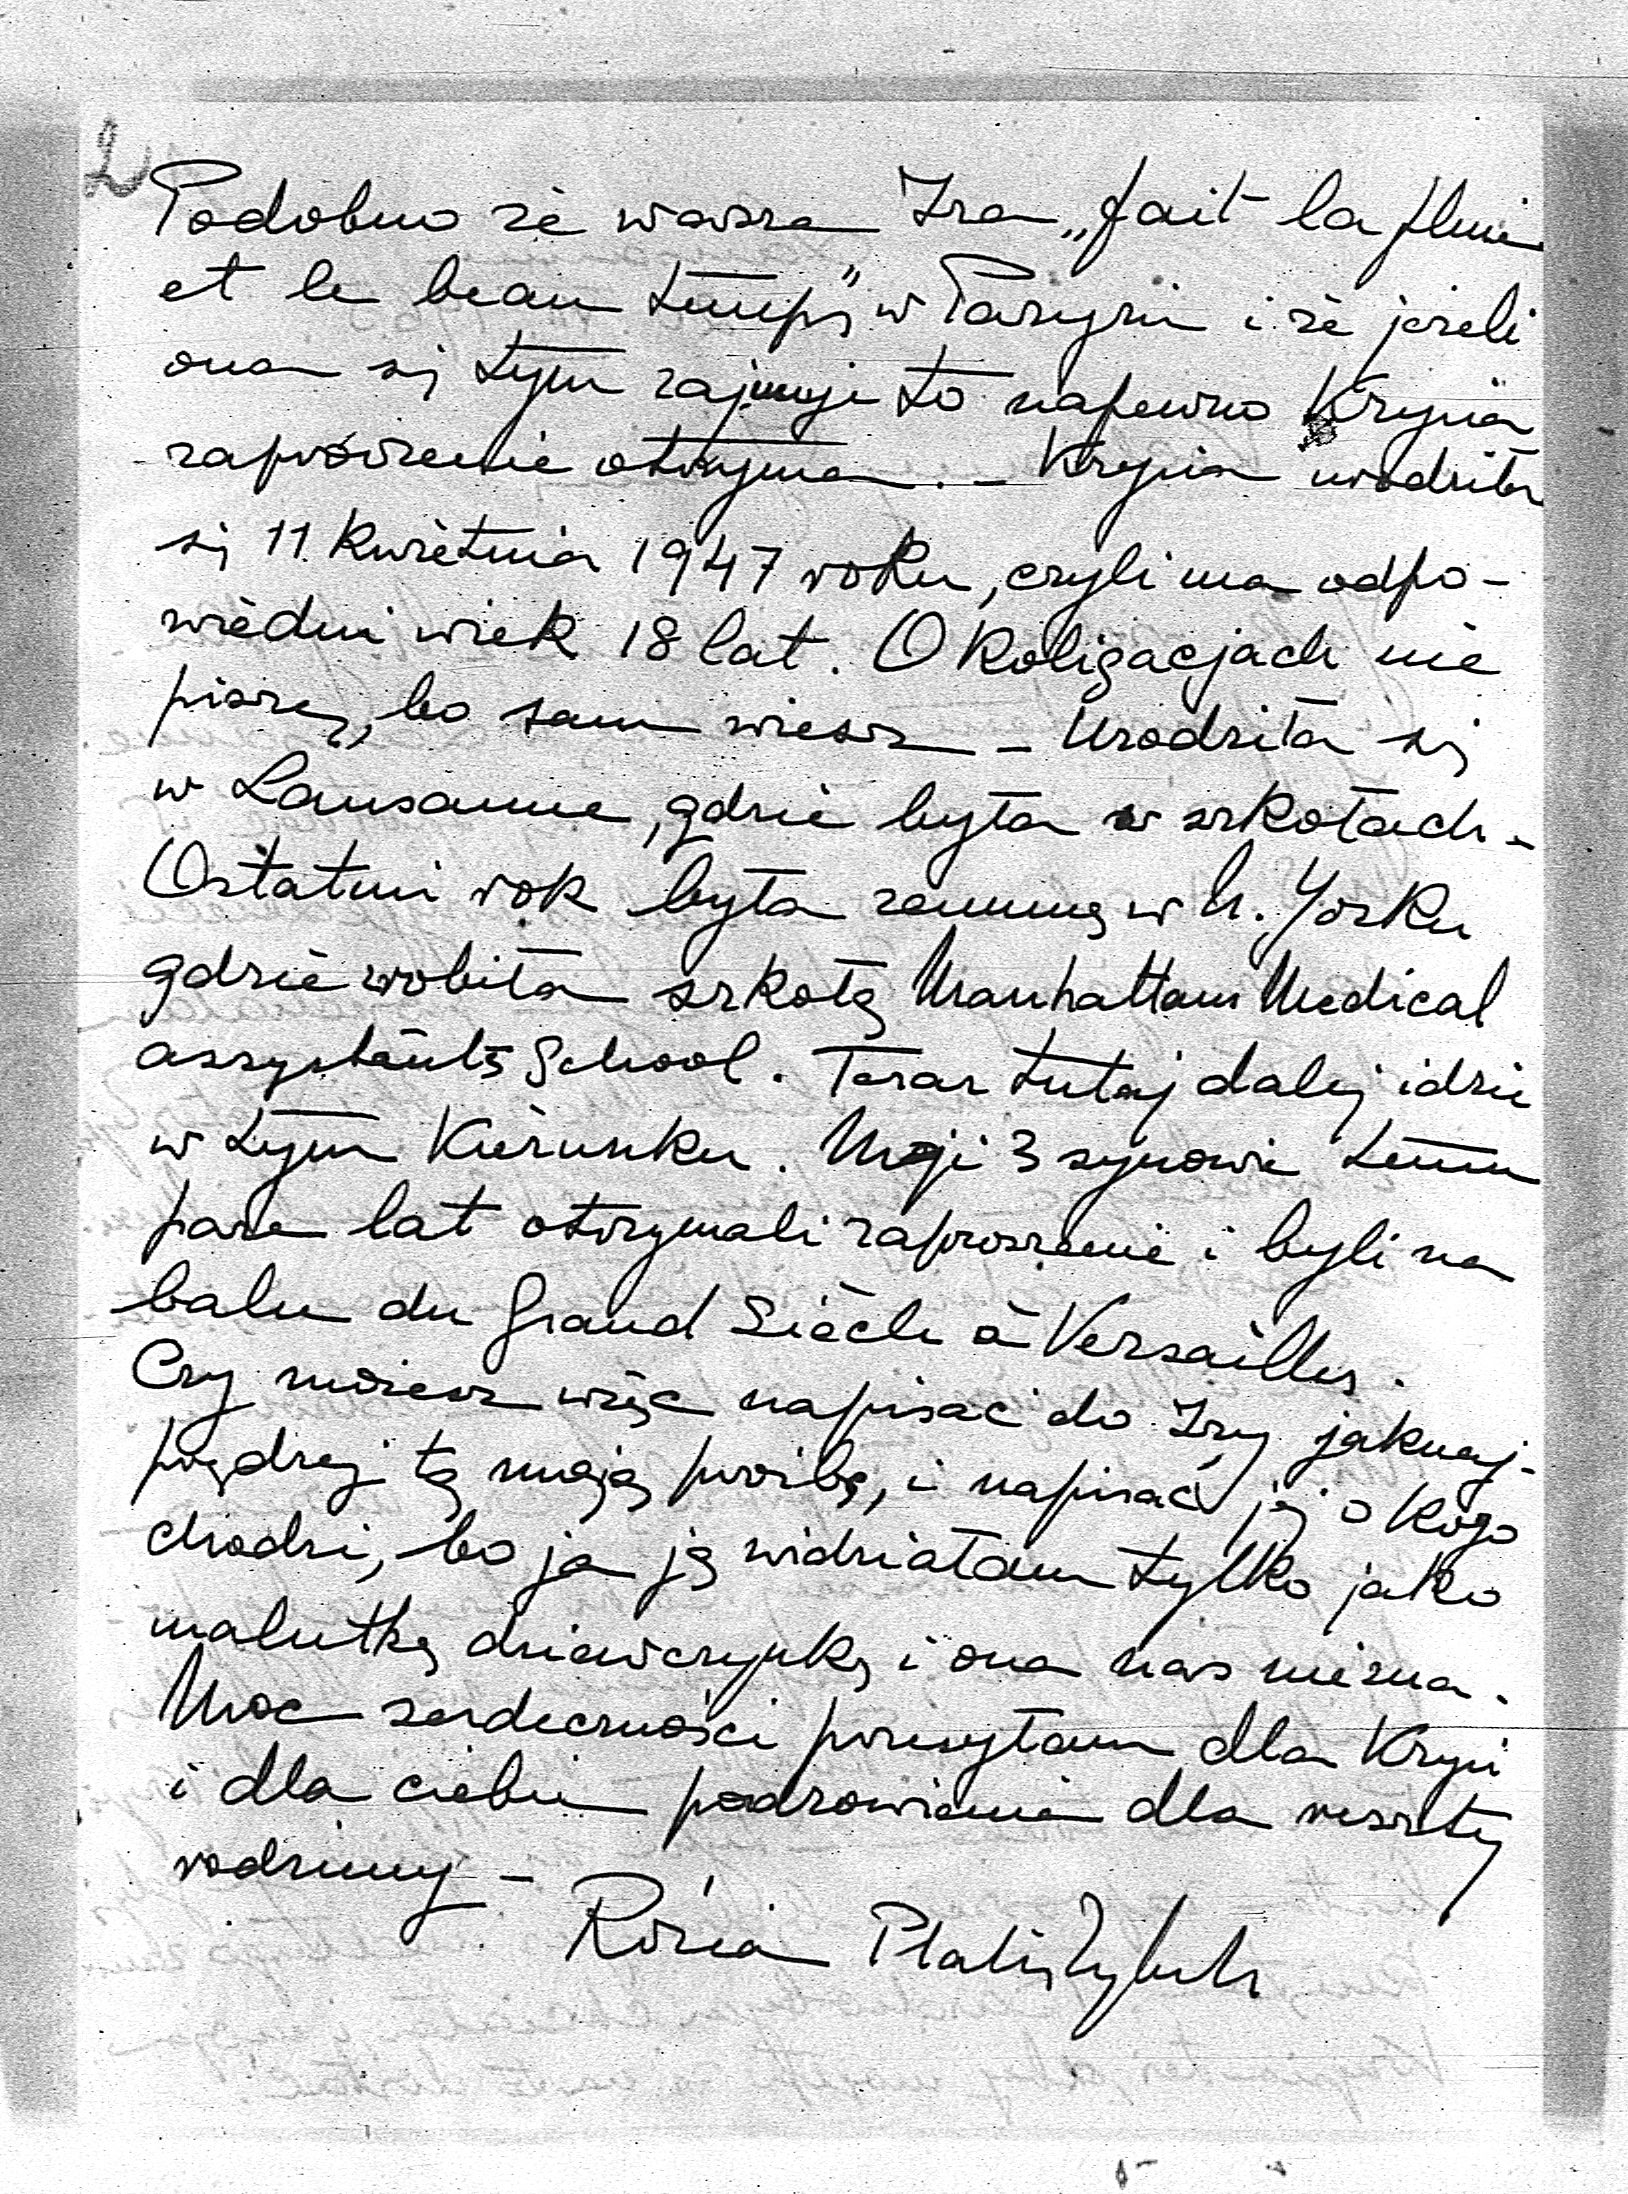 2
Podobno że wasza Iza „fait la pluie
et le beau temps” w Paryżu i że jeżeli
ona się tym zajmuje to napewno Krysia
zaproszenie otrzyma. – Krysia urodziła
się 11 kwietnia 1947 roku, czyli ma odpo-
wiedni wiek 18 lat. O koligacjach nie
piszę, bo sam wiesz – Urodziła się
w Lausanne, gdzie była w szkołach –
Ostatni rok była zemną w N. Yorku
gdzie robiła szkołę Manhattans Medical
assystents School. Teraz tutaj dalej idzie
w tym kierunku. Moji 3 synowie temu
pare lat otrzymali zaproszenie i byli na
balu du Grand Siècle à Versailles.
Czy możesz więc napisać do Izy jaknaj-
prędzej tę moją prośbę, i napisać jej o kogo
chodzi, bo ja ją widziałam tylko jako
malutką dziewczynkę i ona nas niezna.
Moc serdeczności przesyłam dla Krysi
i dla ciebie pozdrowienia dla reszty
rodziny –
Rózia